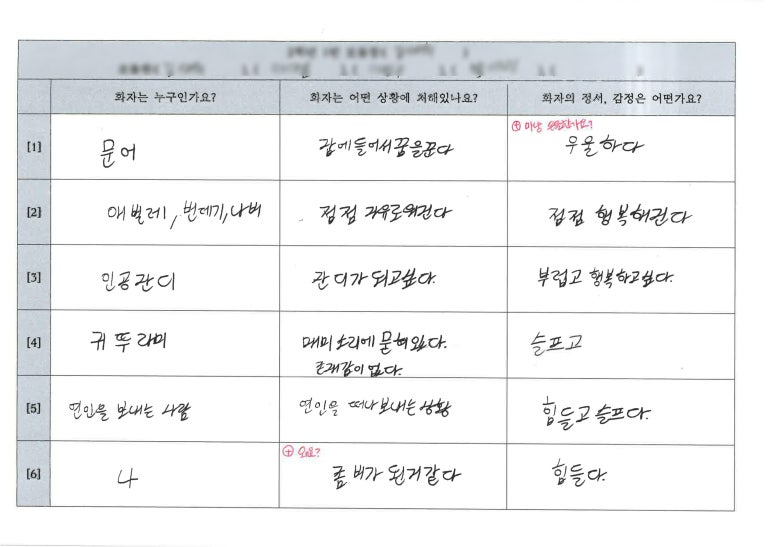 화자는 누구인가요? 화자는 어떤 상황에 처해있나요? 화자의 정서, 감정은 어떤가요?
[1] 문어 캅에들어서꿈을꾼다 ⊕ 마냥 우울하다
[2] 애벌레, 번데기, 나비 점점 자유로워진다 점점 행복해진다
[3] 인공잔디 잔디가 되고싶다. 부럽고 행복하고싶다.
[4] 귀뚜라미 매미소리에 묻혀왔다. 슬프고
존재감이 없다.
[5] 연인을 보내는 사람 연인을 떠나보내는 상황 힘들고 슬프다.
⊕ 왜요?
[6] 나 좀비가 된거같다 힘들다.